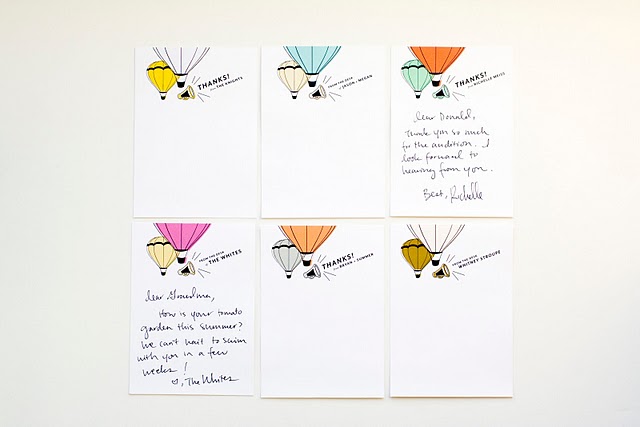 THANKS!
from THE KNIGHTS
FROM THE DESK
of JASON + MEGAN
THANKS!
from RICHELLE WEISS
Dear Donald,
Thank you so much
for the audition. I
look forward to
hearing from you.
Best, Richelle
FROM THE DESK
of THE WHITES
Dear Grandma,
How is your tomato
garden this summer?
We can't wait to swim
with you in a few
weeks!
♡, The Whites
THANKS!
from BRENN + SUMMER
FROM THE DESK
of WHITNEY STROUPE